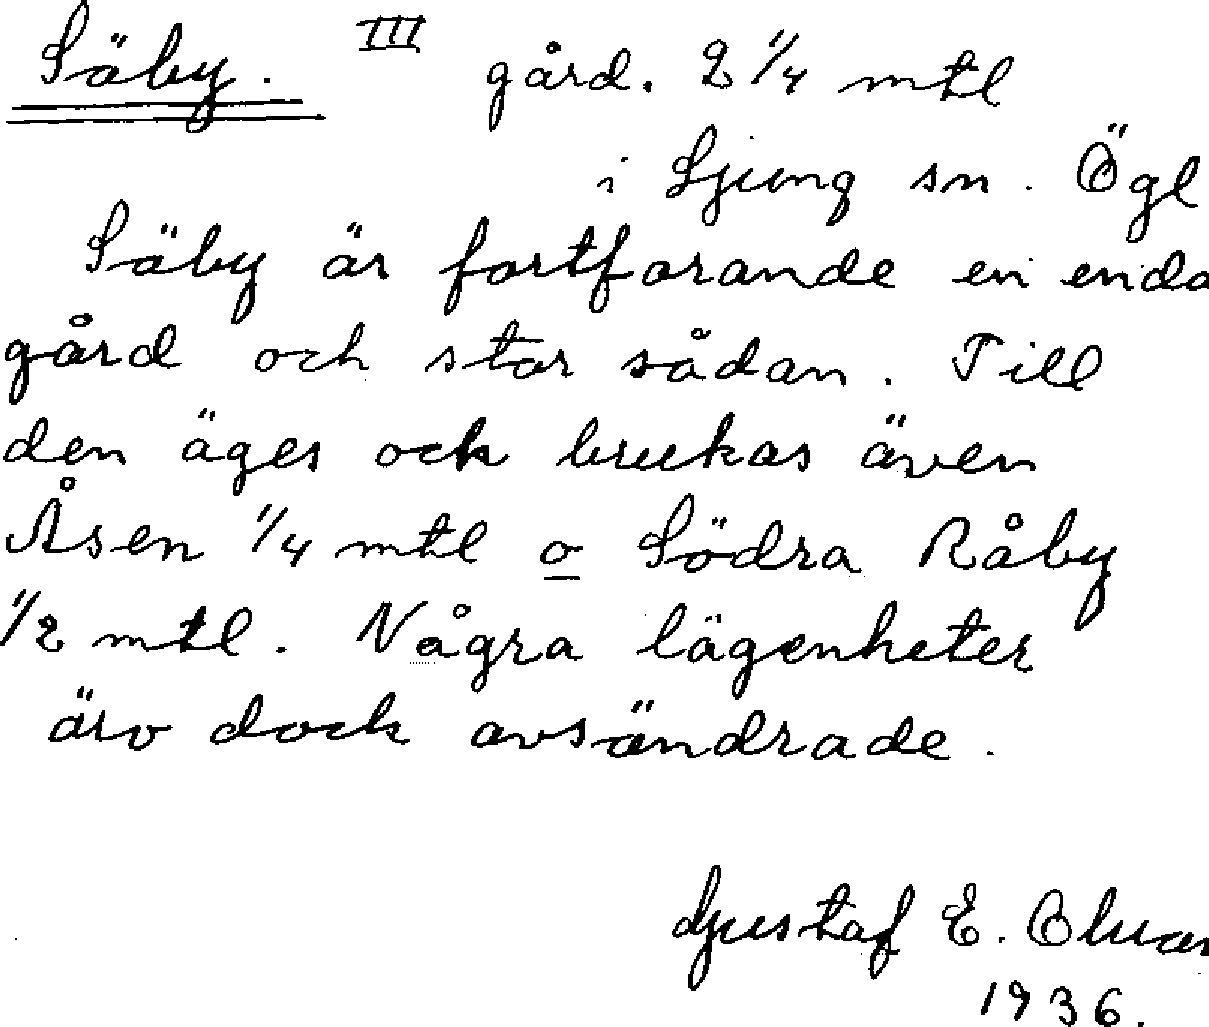 Säby. III gård. 2 1/4 mtl
i Ljung sn. Ögl
Säby är fortfarande en enda
gård och stor sådan. Till
den äges och brukas även
Åsen 1/4 mtl o Södra Råby
1/2 mtl. Några lägenheter
äro dock avsöndrade.
Gustaf E.
1936.